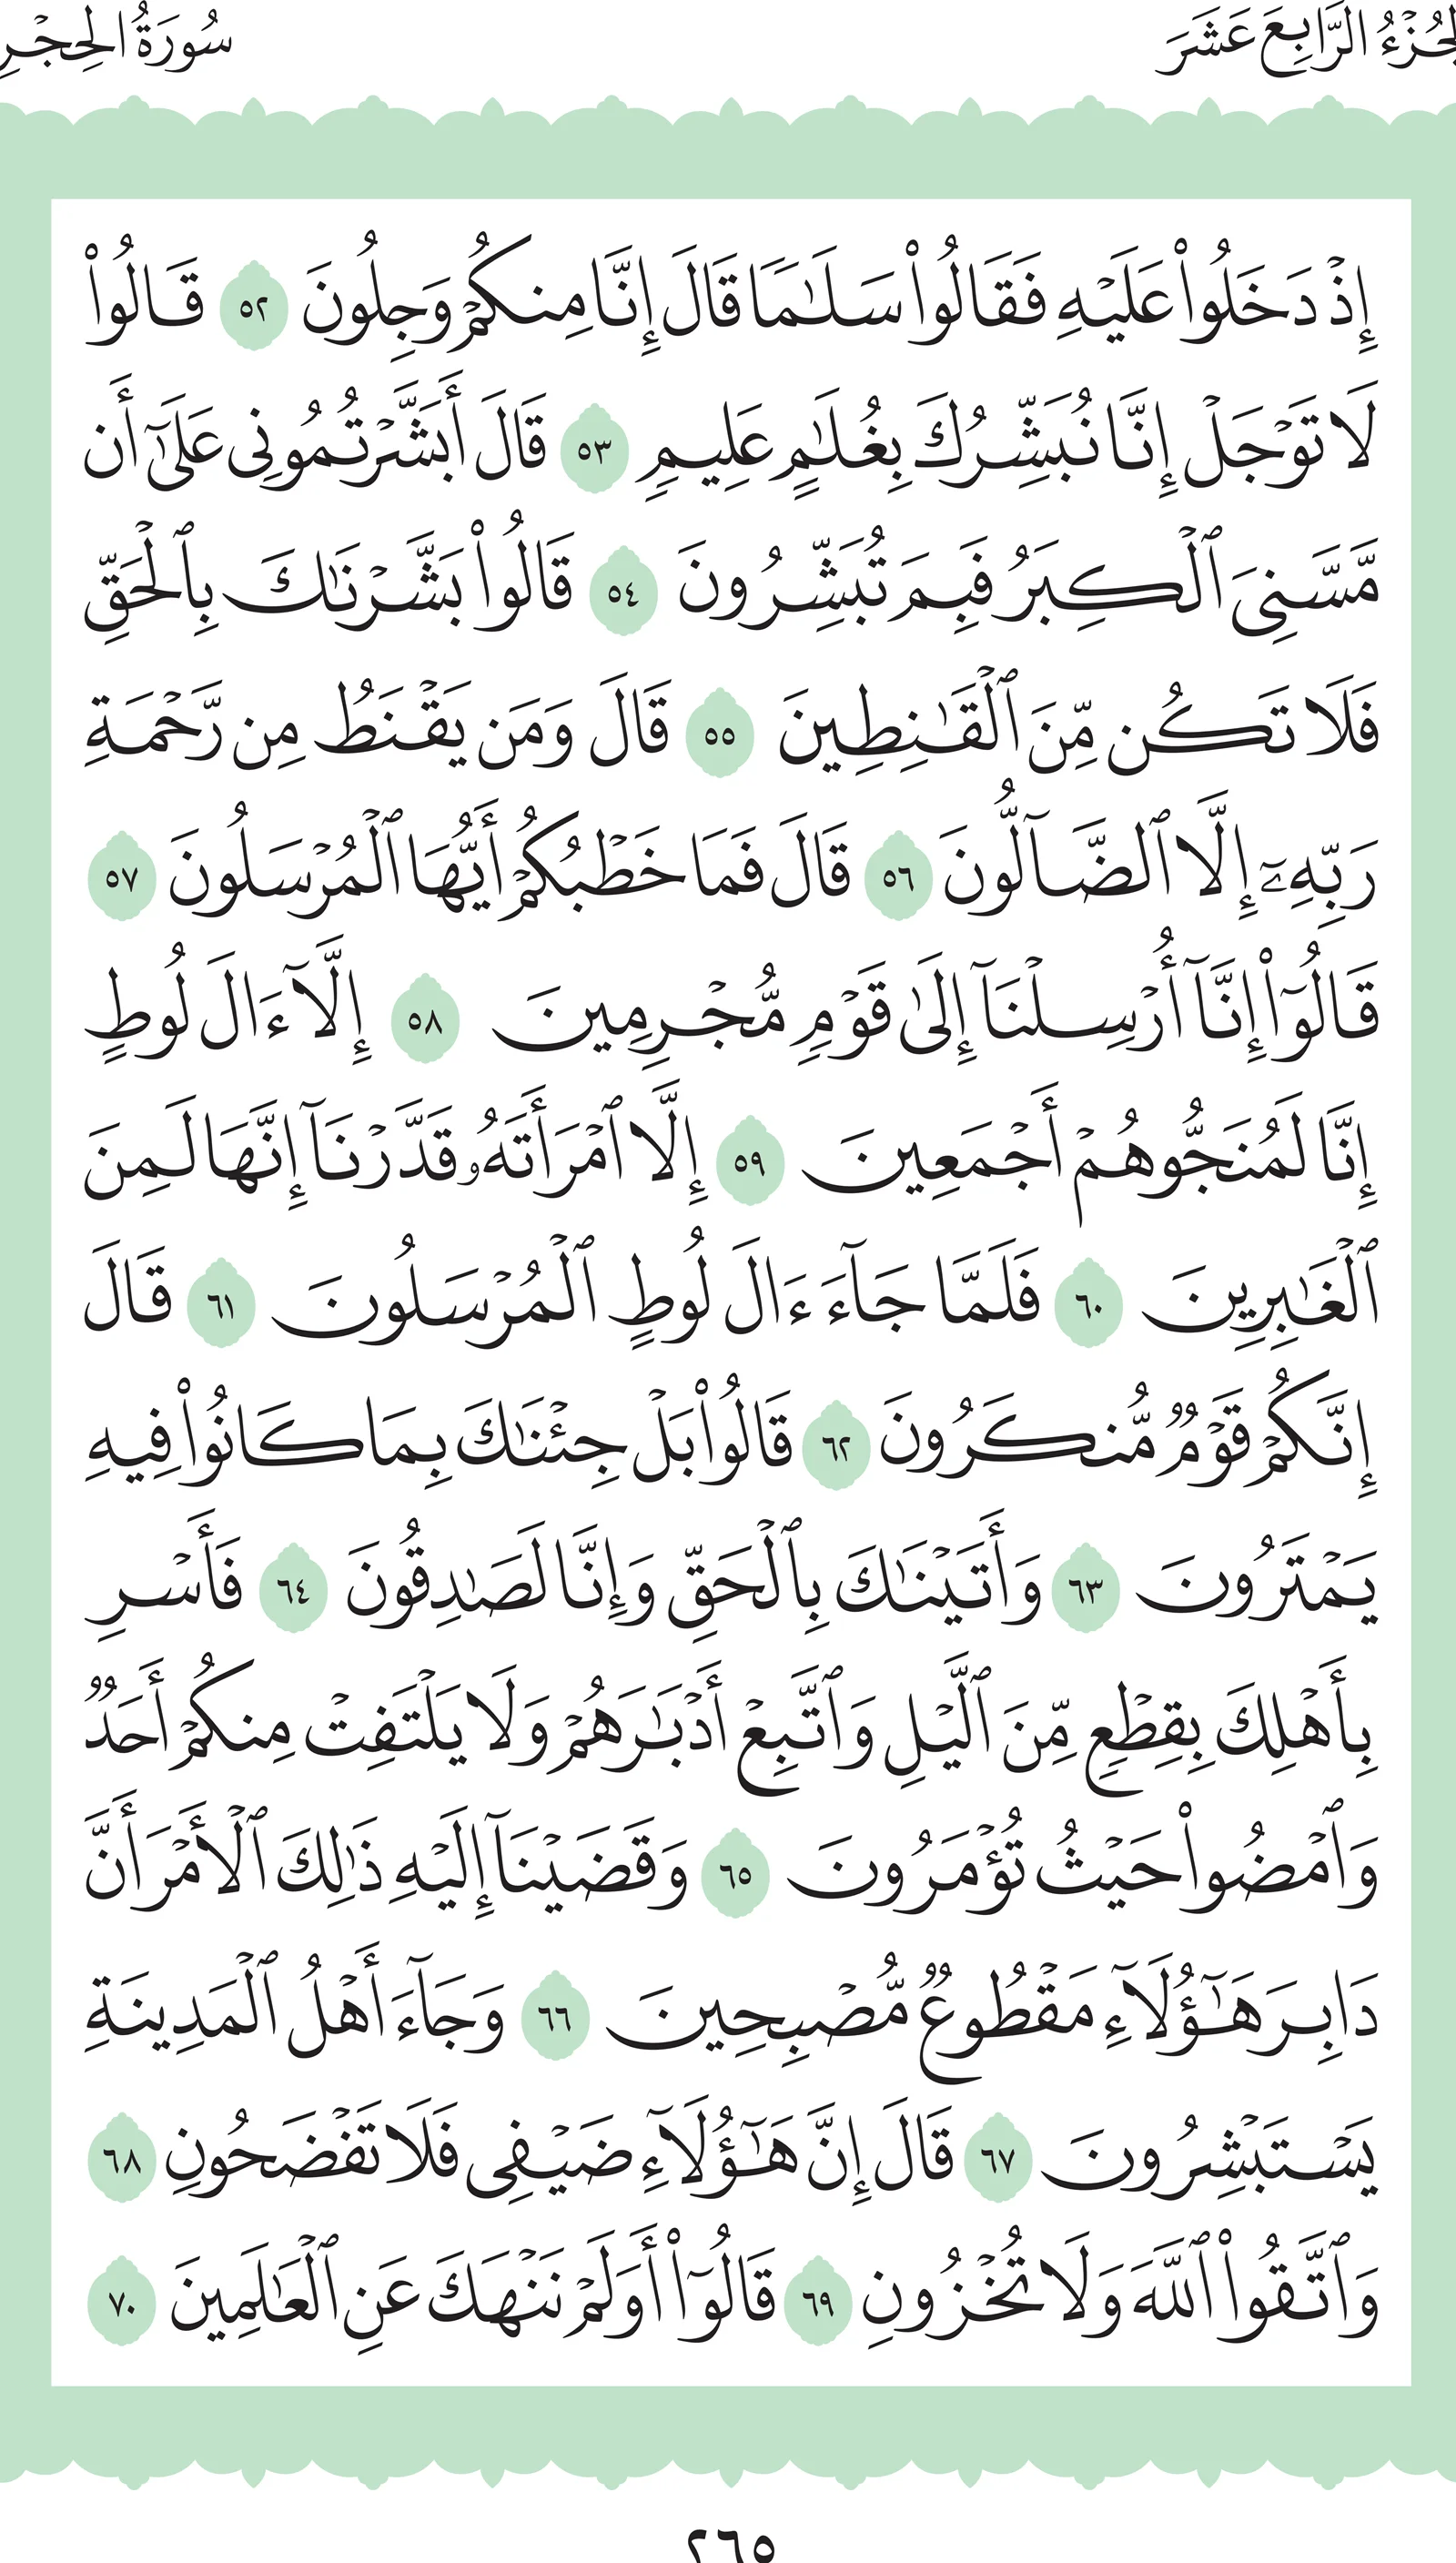 الجُزْءُ الرَّابِعَ عَشَرَ
سُورَةُ الحِجْرِ
إِذْ دَخَلُوا۟ عَلَيْهِ فَقَالُوا۟ سَلَـٰمًا قَالَ إِنَّا مِنكُمْ وَجِلُونَ ٥٢ قَالُوا۟
لَا تَوْجَلْ إِنَّا نُبَشِّرُكَ بِغُلَـٰمٍ عَلِيمٍ ٥٣ قَالَ أَبَشَّرْتُمُونِى عَلَىٰٓ أَن
مَّسَّنِىَ ٱلْكِبَرُ فَبِمَ تُبَشِّرُونَ ٥٤ قَالُوا۟ بَشَّرْنَـٰكَ بِٱلْحَقِّ
فَلَا تَكُن مِّنَ ٱلْقَـٰنِطِينَ ٥٥ قَالَ وَمَن يَقْنَطُ مِن رَّحْمَةِ
رَبِّهِۦٓ إِلَّا ٱلضَّآلُّونَ ٥٦ قَالَ فَمَا خَطْبُكُمْ أَيُّهَا ٱلْمُرْسَلُونَ ٥٧
قَالُوٓا۟ إِنَّآ أُرْسِلْنَآ إِلَىٰ قَوْمٍ مُّجْرِمِينَ ٥٨ إِلَّآ ءَالَ لُوطٍ
إِنَّا لَمُنَجُّوهُمْ أَجْمَعِينَ ٥٩ إِلَّا ٱمْرَأَتَهُۥ قَدَّرْنَآ إِنَّهَا لَمِنَ
ٱلْغَـٰبِرِينَ ٦٠ فَلَمَّا جَآءَ ءَالَ لُوطٍ ٱلْمُرْسَلُونَ ٦١ قَالَ
إِنَّكُمْ قَوْمٌ مُّنكَرُونَ ٦٢ قَالُوا۟ بَلْ جِئْنَـٰكَ بِمَا كَانُوا۟ فِيهِ
يَمْتَرُونَ ٦٣ وَأَتَيْنَـٰكَ بِٱلْحَقِّ وَإِنَّا لَصَـٰدِقُونَ ٦٤ فَأَسْرِ
بِأَهْلِكَ بِقِطْعٍ مِّنَ ٱلَّيْلِ وَٱتَّبِعْ أَدْبَـٰرَهُمْ وَلَا يَلْتَفِتْ مِنكُمْ أَحَدٌ
وَٱمْضُوا۟ حَيْثُ تُؤْمَرُونَ ٦٥ وَقَضَيْنَآ إِلَيْهِ ذَٰلِكَ ٱلْأَمْرَ أَنَّ
دَابِرَ هَـٰٓؤُلَآءِ مَقْطُوعٌ مُّصْبِحِينَ ٦٦ وَجَآءَ أَهْلُ ٱلْمَدِينَةِ
يَسْتَبْشِرُونَ ٦٧ قَالَ إِنَّ هَـٰٓؤُلَآءِ ضَيْفِى فَلَا تَفْضَحُونِ ٦٨
وَٱتَّقُوا۟ ٱللَّهَ وَلَا تُخْزُونِ ٦٩ قَالُوٓا۟ أَوَلَمْ نَنْهَكَ عَنِ ٱلْعَـٰلَمِينَ ٧٠
٢٦٥